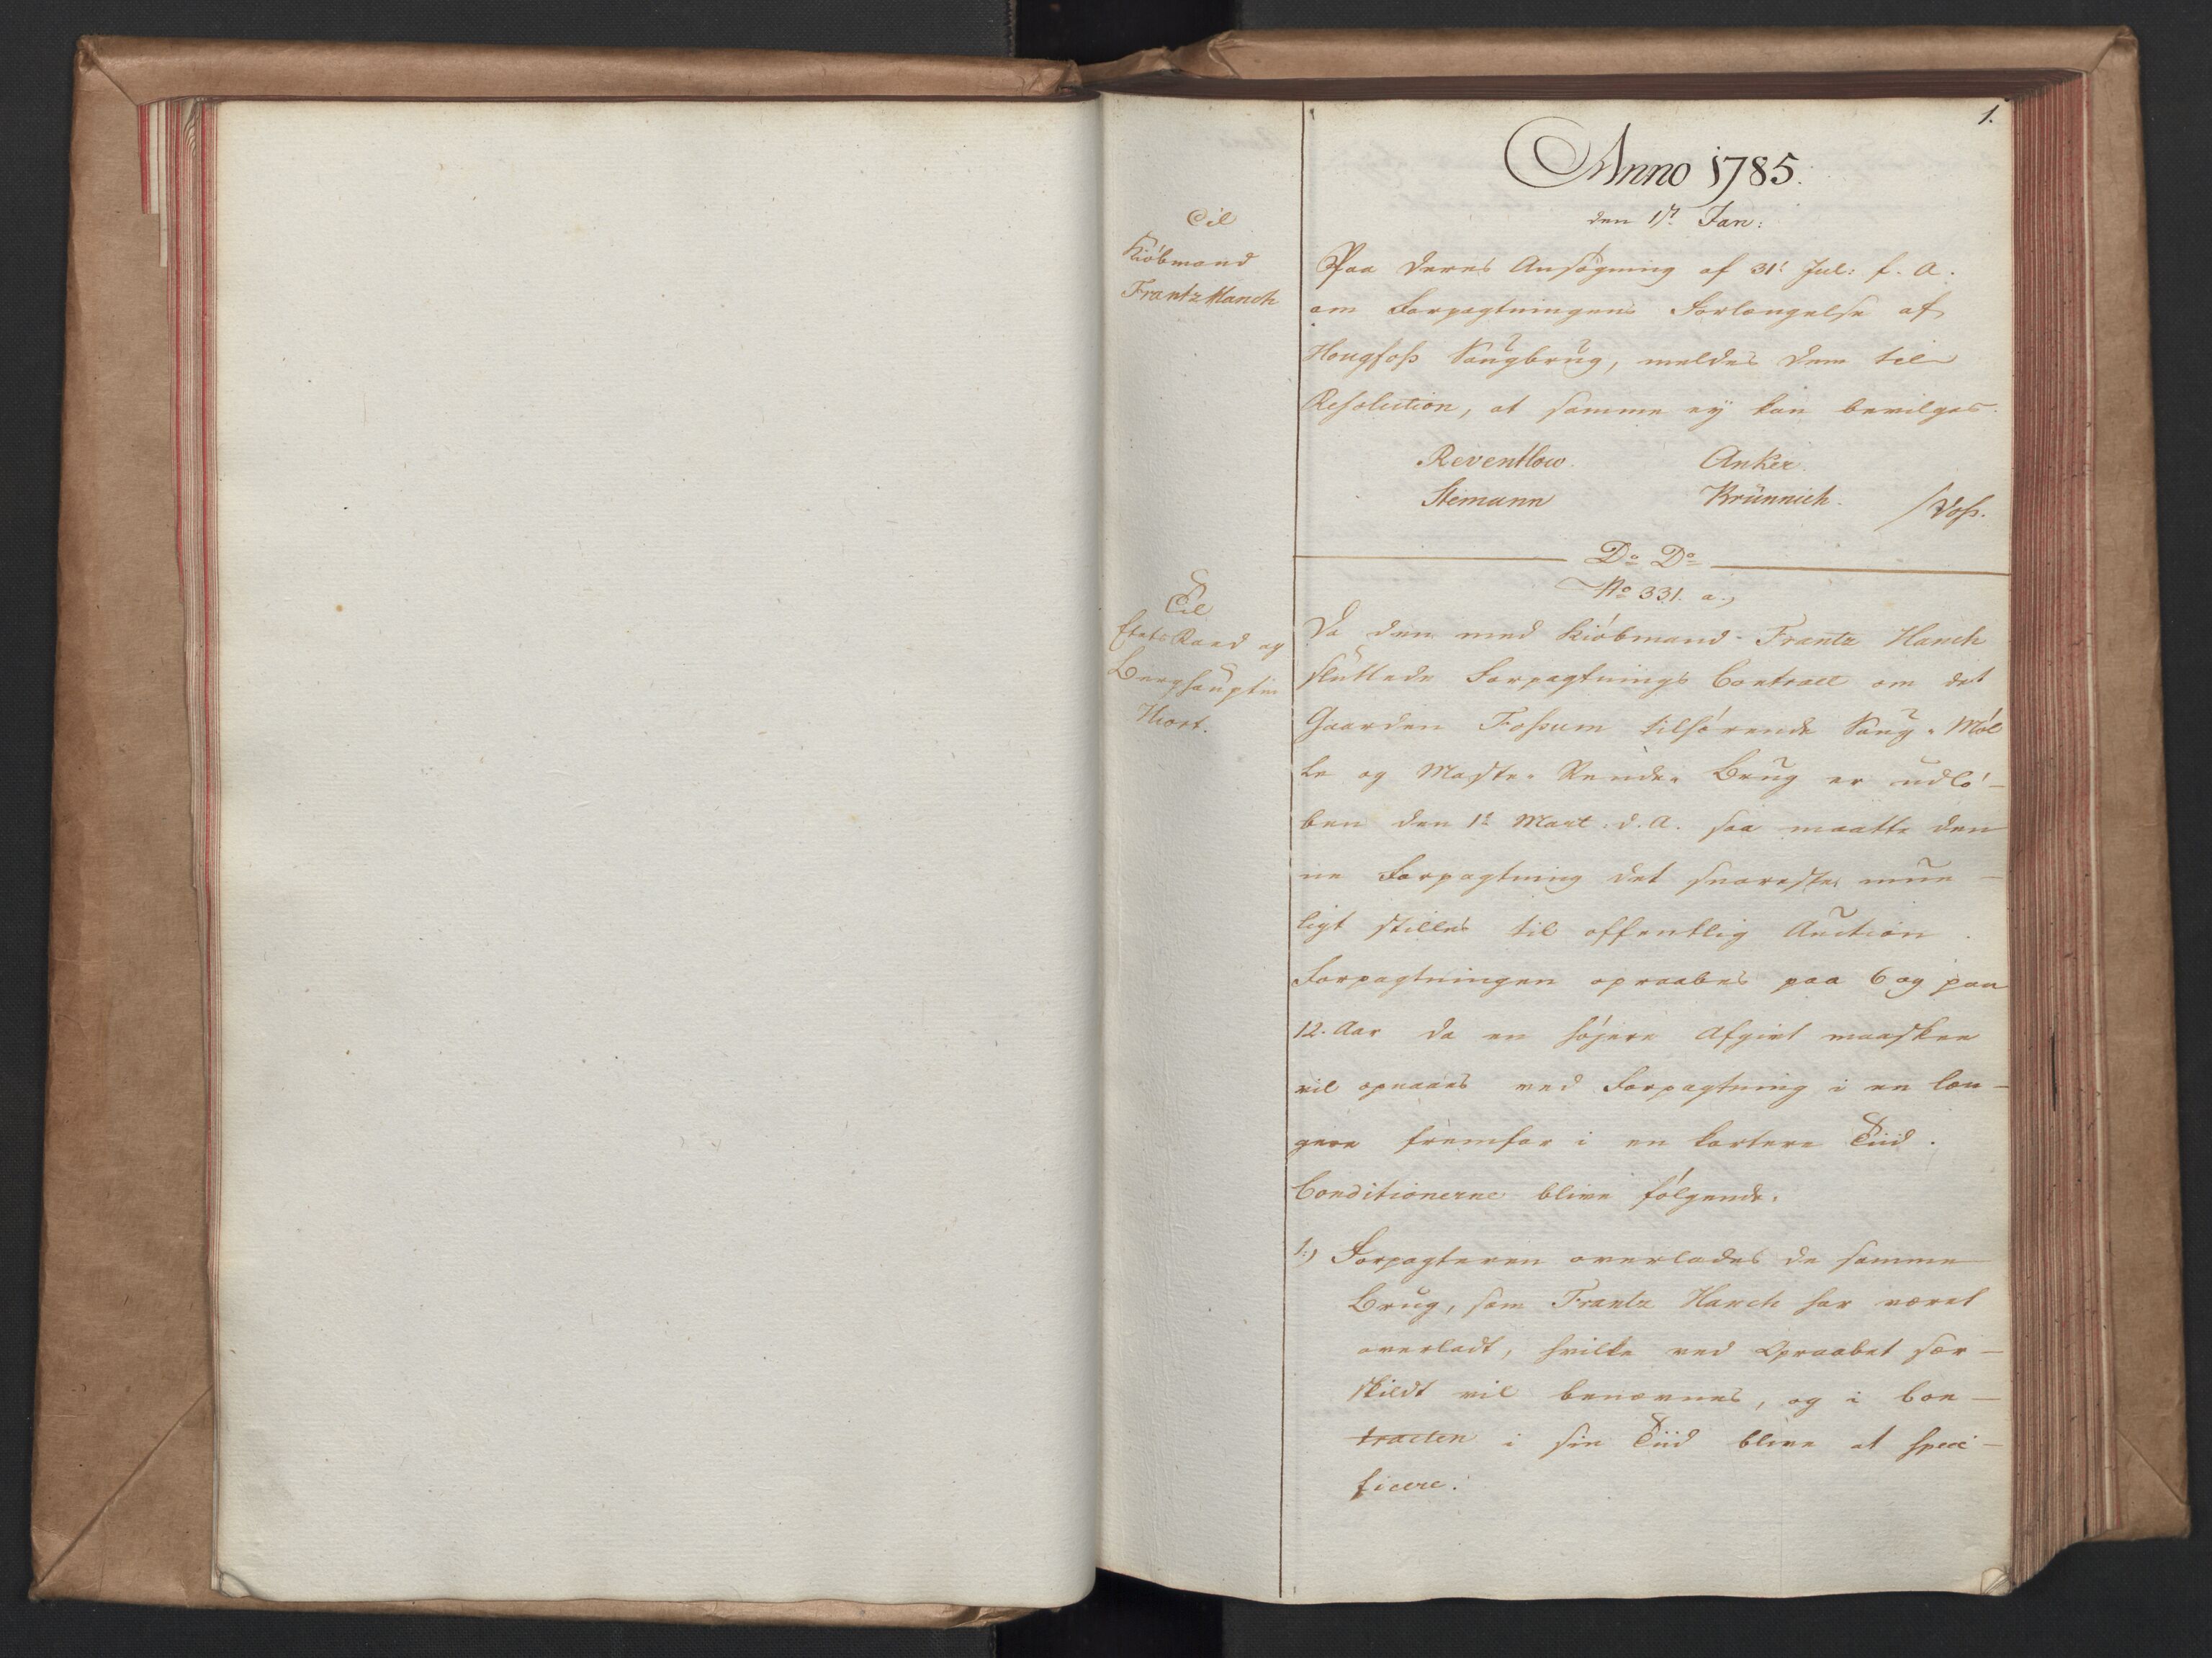 1.
Anno 1785.
den 1st Jan:
Til
Kiöbmand
Frantz Hanch
Paa Deres Ansøgning af 31t Jul: f. A.
om Forpagtningens Forlængelse af
Hougfoss Saugbrug, meldes Dem til
Resolution, at samme ey kan bevilges.
Reventlow. Anker.
Stemann Brünnich. /Voss.
Do Do
No 331. a.,
Til
Etats Raad og
Berghauptm
Hiort.
Da den med Kiøbmand Frantz Hanch
sluttede Forpagtnings Contract om det
Gaarden Fossum tilhørende Saug- Møl
le og Maste- Rende- Brug er udlø-
ben den 1t Mart. d. A. saa maatte den
ne Forpagtning det snareste mue-
ligt stilles til offentlig Auction.
Forpagtningen opraabes paa 6 og paa
12. Aar da en høyere Afgivt maaskee
vil opnaaes ved Forpagtning i en læn-
gere fremfor i en kortere Tiid.
Conditionerne blive følgende.
1:, Forpagteren overlades de samme
Brug, som Frantz Hanch har været
overladt, hvilke ved Opraabet sær-
skildt vil benævnes, og i Con-
tracten i sin Tiid blive at speci-
ficere.